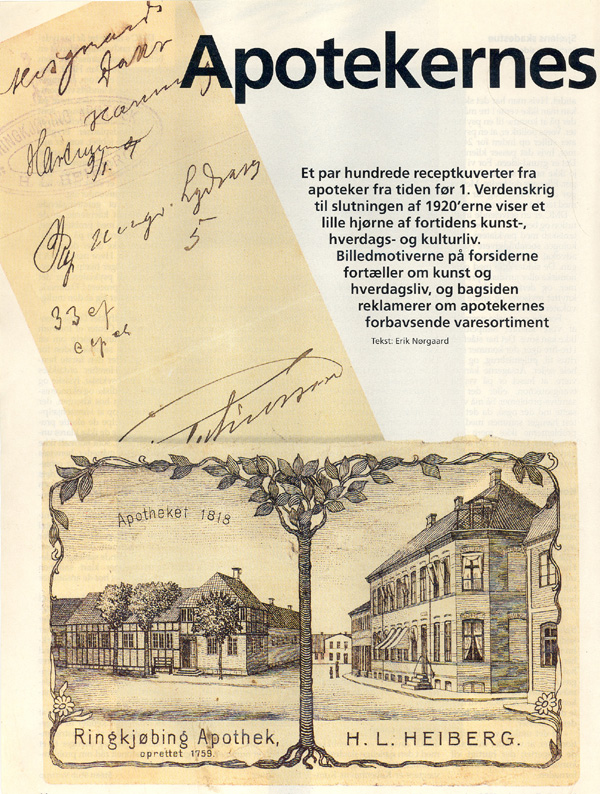 Apotekernes
Et par hundrede receptkuverter fra
apoteker fra tiden før 1. Verdenskrig
til slutningen af 1920'erne viser et
lille hjørne af fortidens kunst-,
hverdags- og kulturliv.
Billedmotiverne på forsiderne
fortæller om kunst og
hverdagsliv, og bagsiden
reklamerer om apotekernes
forbavsende varesortiment
Tekst: Erik Nørgaard
5
33
Apotheket 1818
Ringkjøbing Apothek,
oprettet 1759.
H. L. HEIBERG.